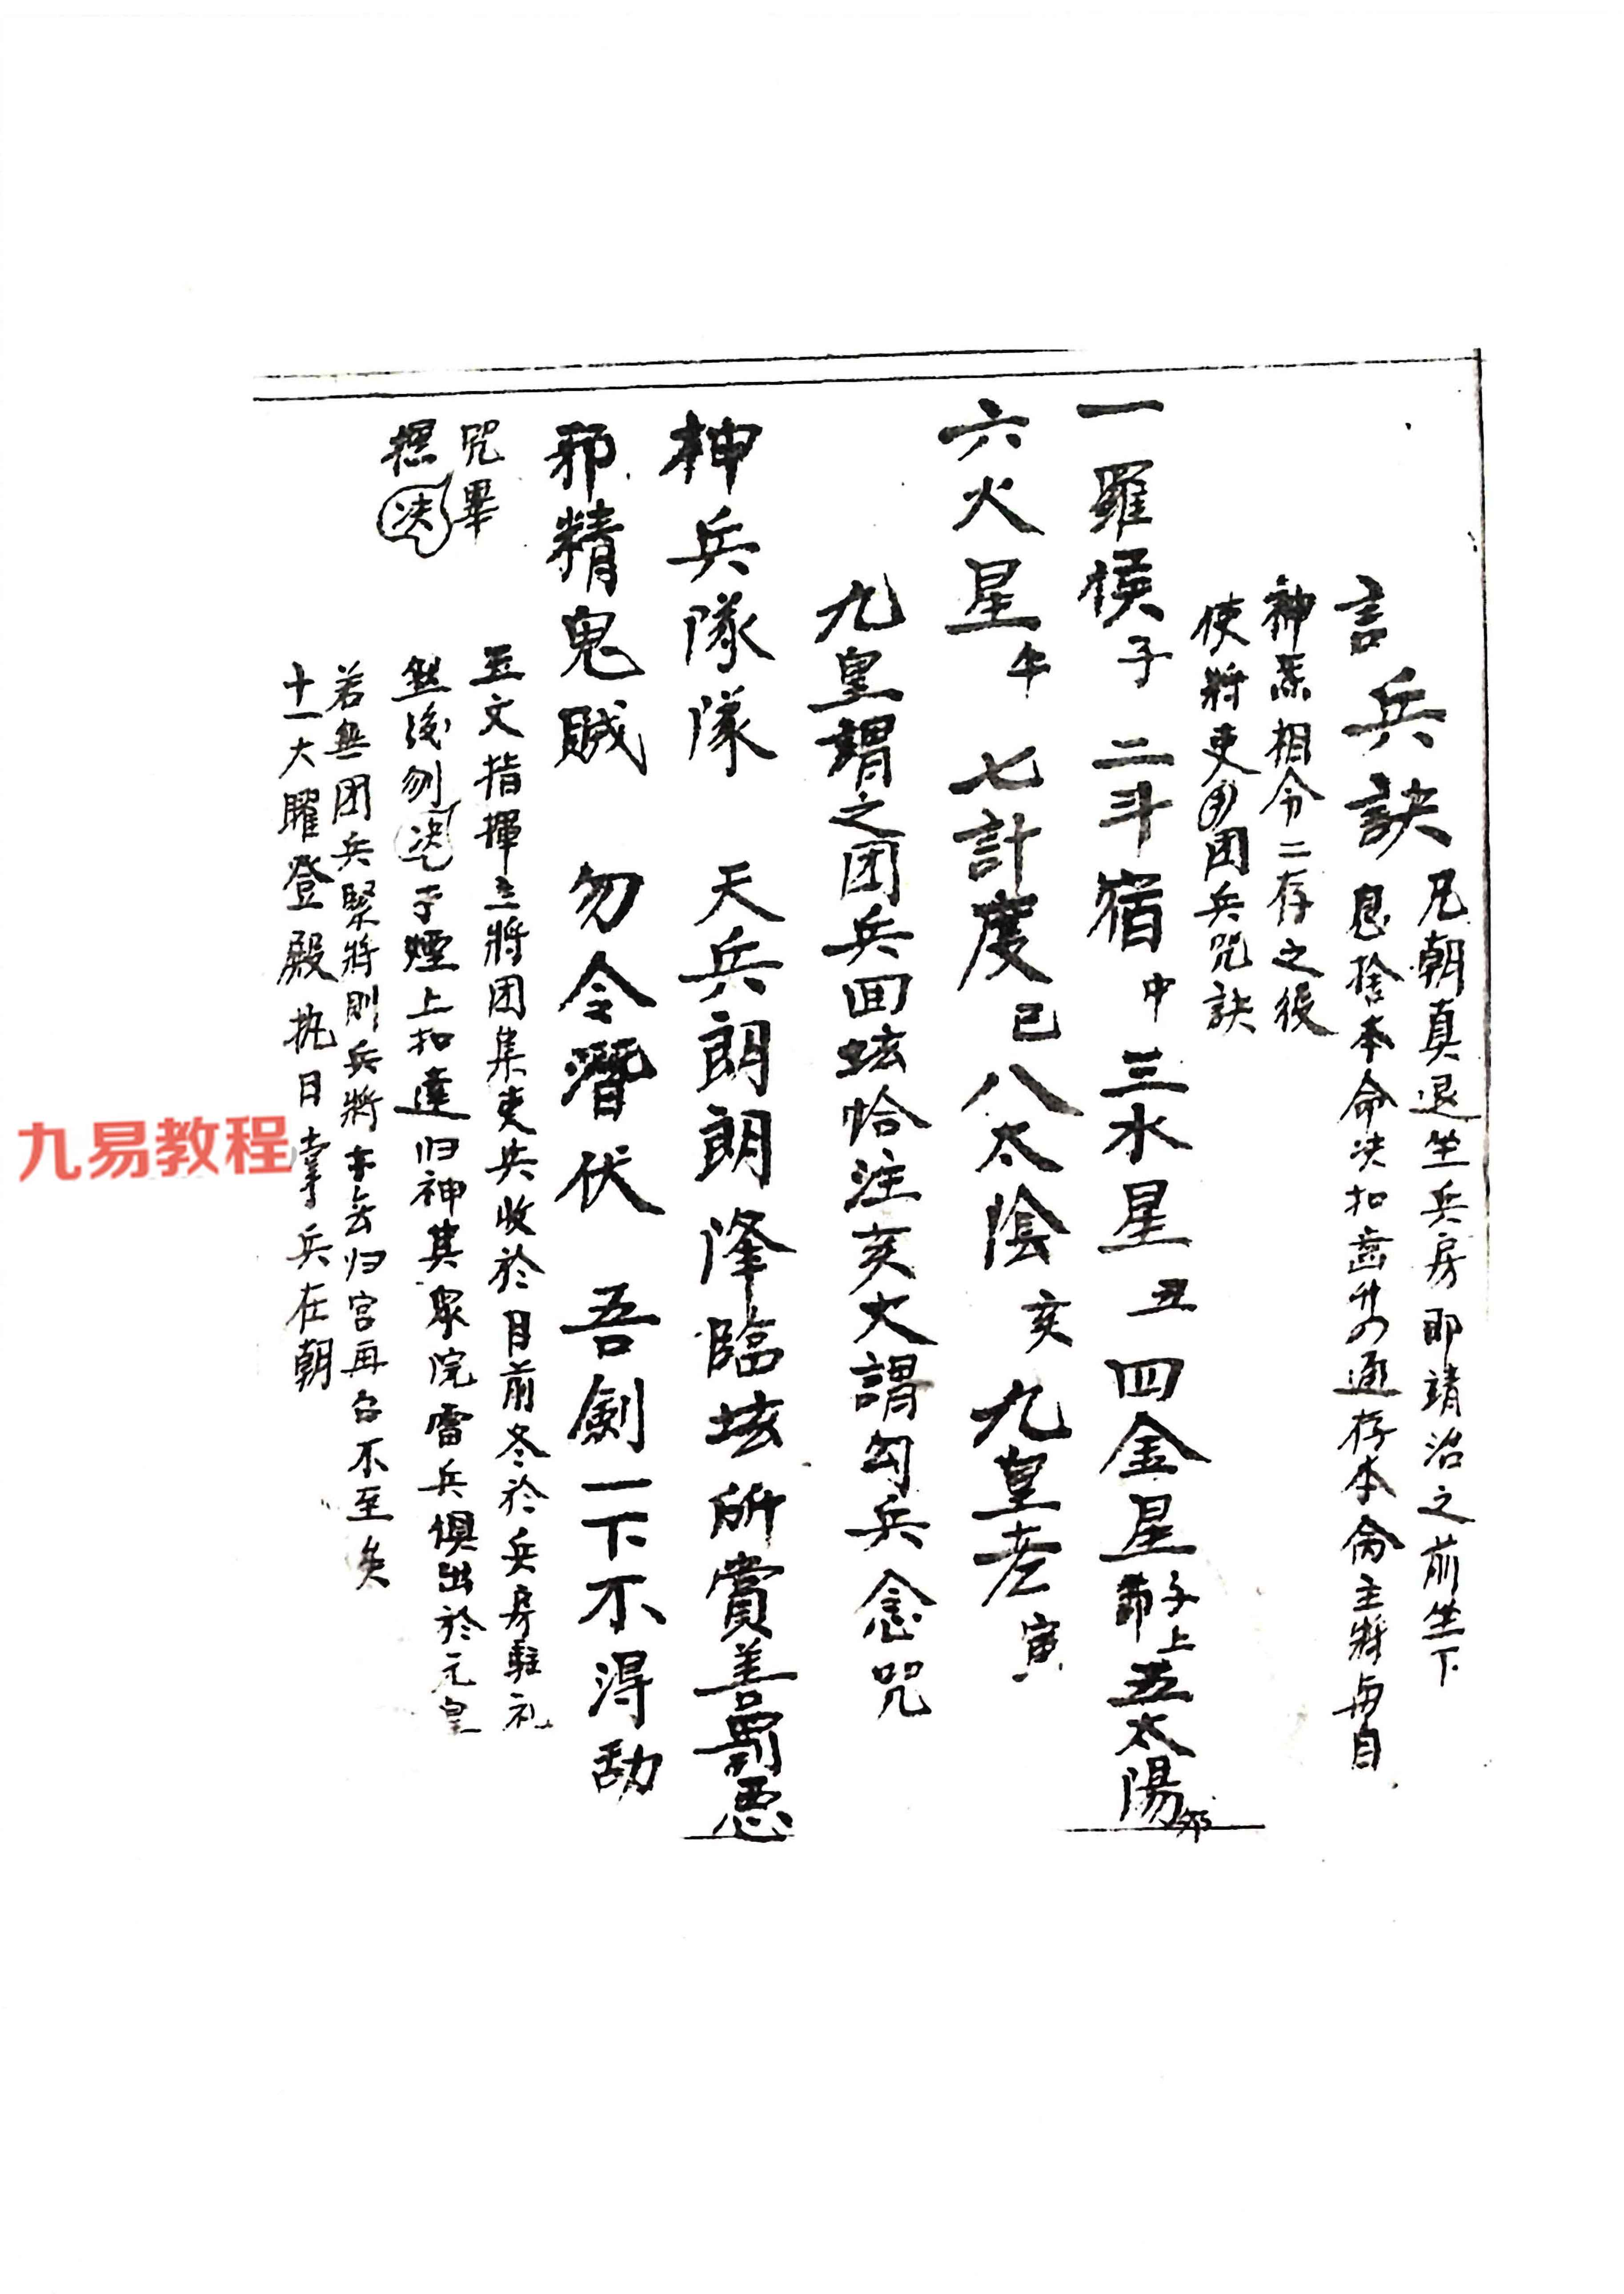 言兵訣
凡朝真退坐兵房即靖治之前坐下
息捨本命决扣齒廾四通存本命主將與自
神炁相合二存之後
使將吏團兵咒訣
一羅侯子 二斗宿中 三水星丑 四金星子上節 五太陽卯
六火星午 七計度巳 八太陰亥 九皇老寅
九皇謂之团兵回坛恰注亥大謂勾兵念咒
神兵隊隊 天兵朗朗 降臨坛所 賞善罰惡
邪精鬼賊 勿令潛伏 吾劍一下 不得動
咒畢
摽决
玉文指揮主將团集吏兵收於目前冬於兵房駐礼
然後刎决于煙上扣達归神其眾院雷兵俱出於元皇
若無团兵緊將則兵將亦無归宮再召不至矣
十一大曜登殿执日掌兵在朝
九易教程